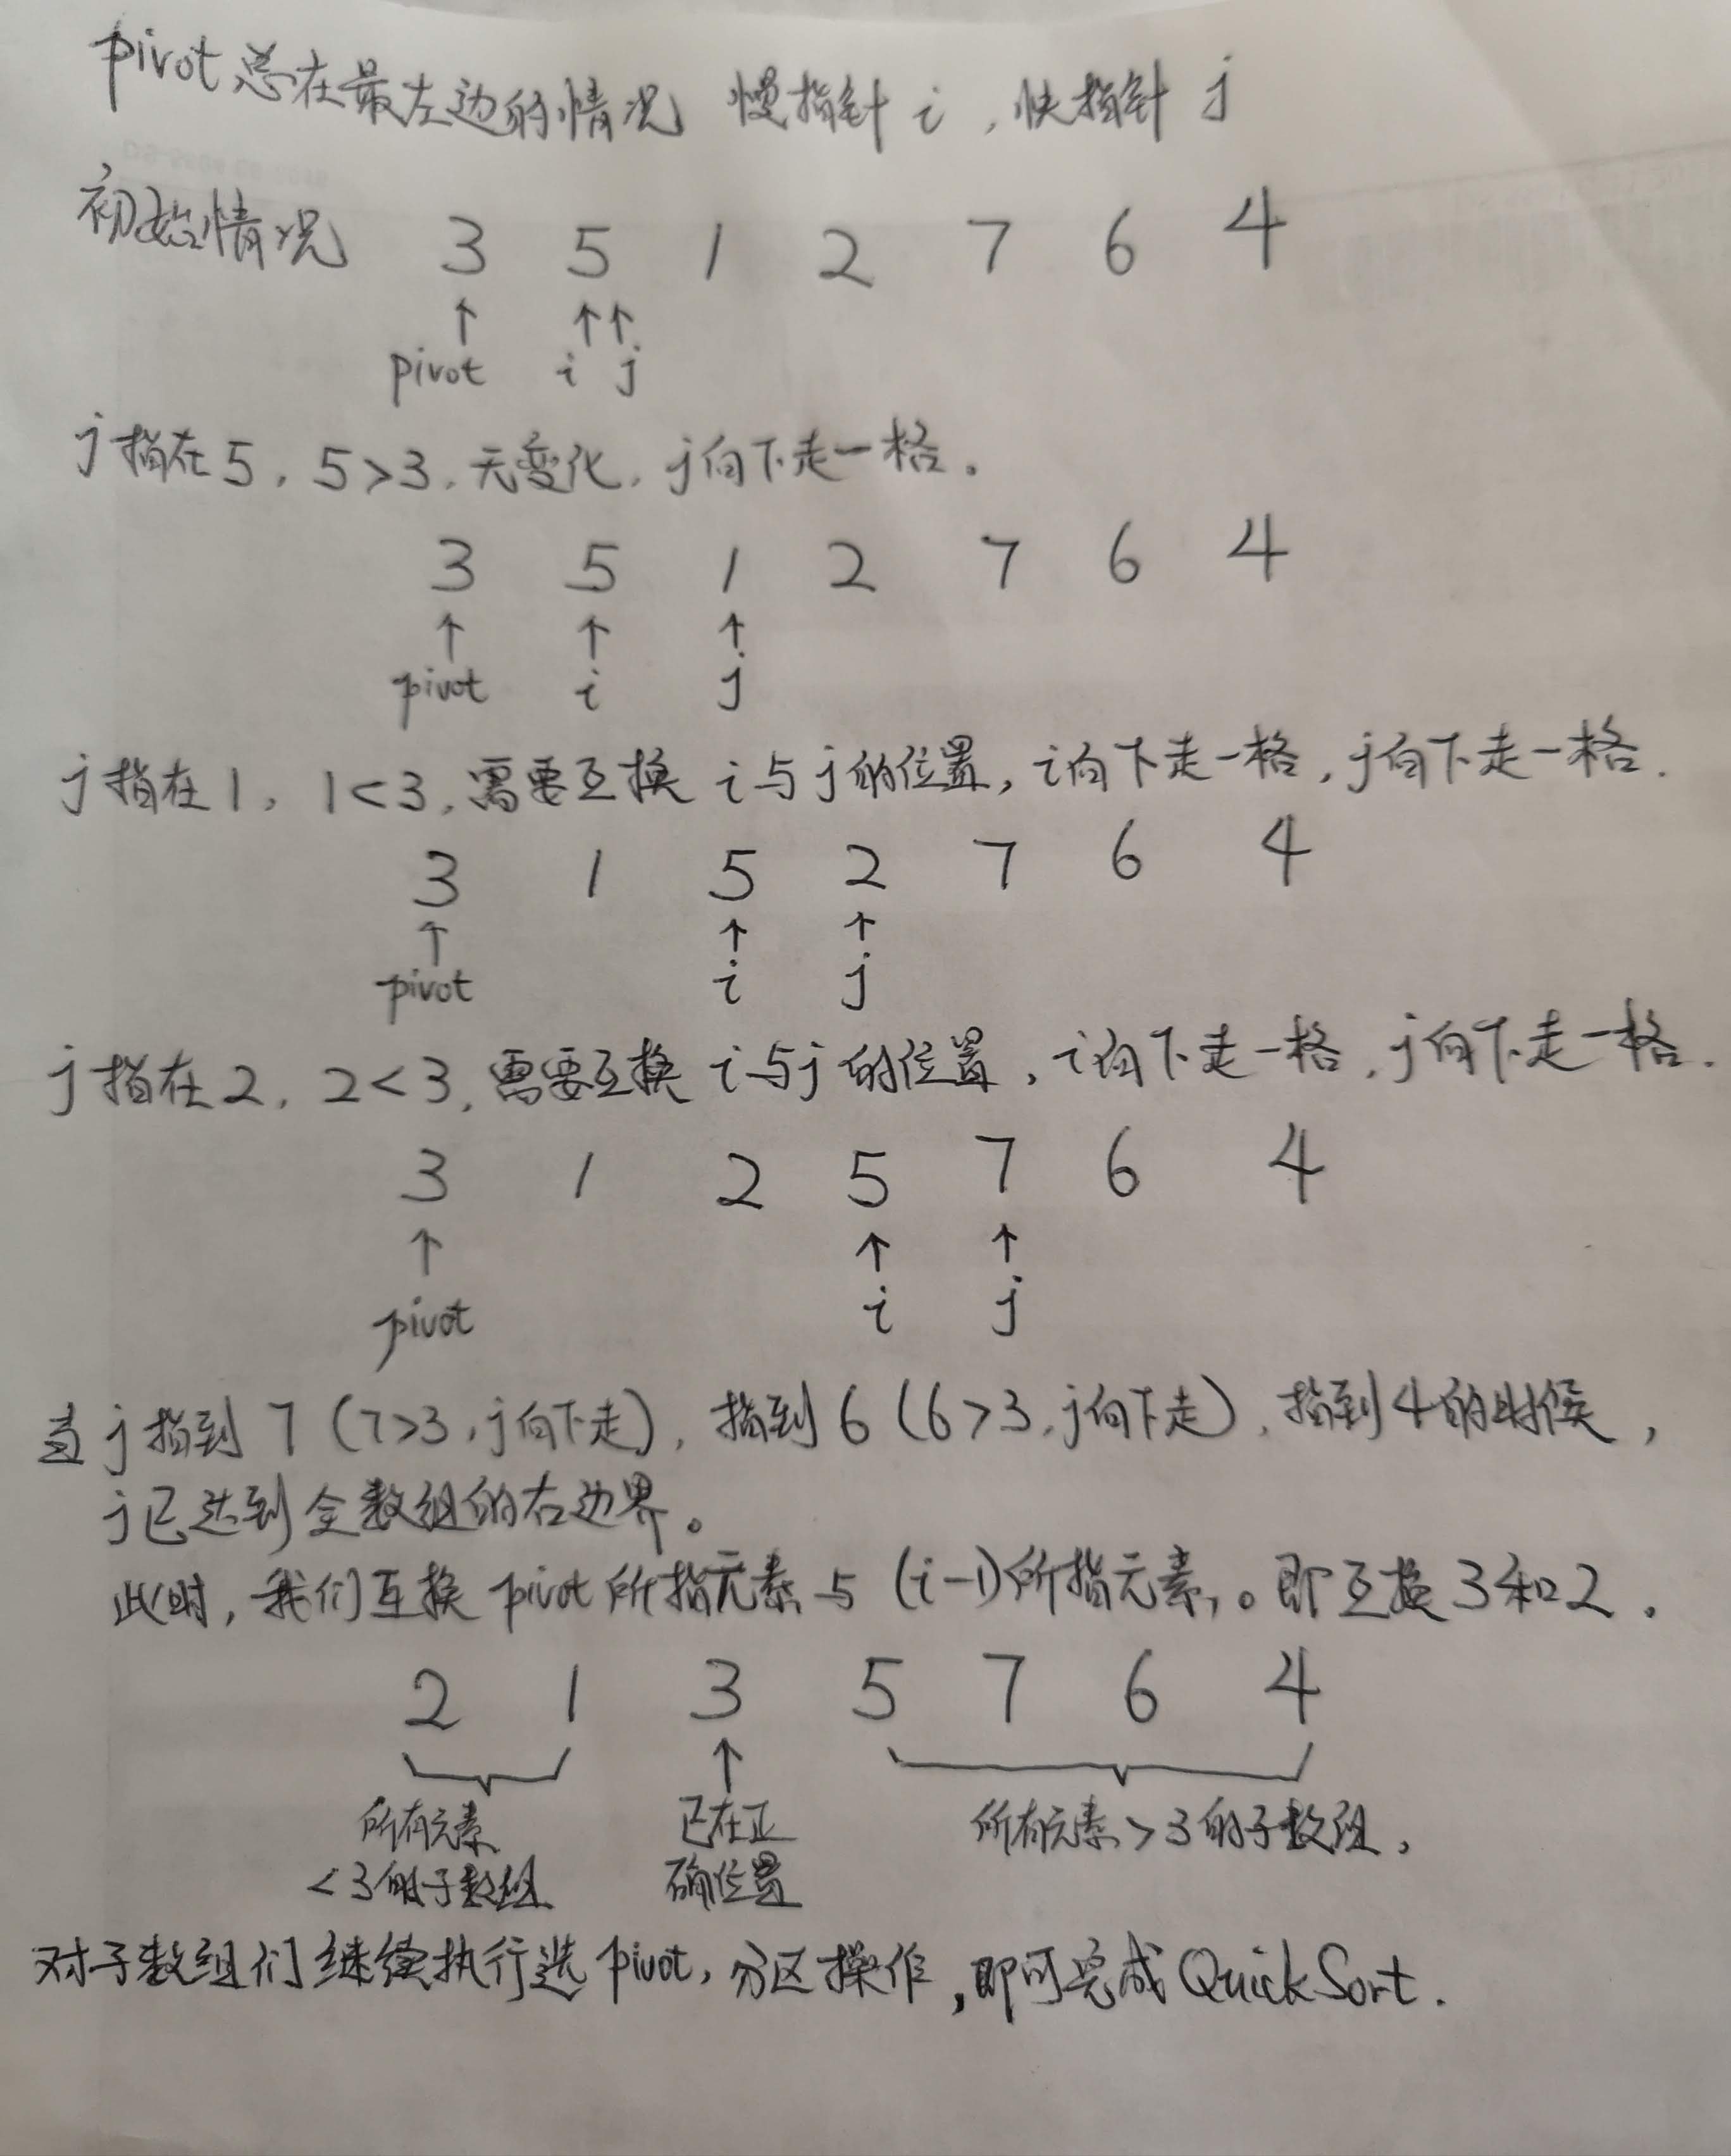 pivot总在最左边的情况 慢指针 i ,快指针 j
初始情况 3 5 1 2 7 6 4
↑ ↑↑
pivot i j
j指在5, 5>3,无变化,j向下走一格。
3 5 1 2 7 6 4
↑ ↑ ↑
pivot i j
j指在1, 1<3,需要互换 i与j的位置,i向下走一格,j向下走一格.
3 1 5 2 7 6 4
↑ ↑ ↑
pivot i j
j指在2, 2<3,需要互换 i与j的位置,i向下走一格,j向下走一格.
3 1 2 5 7 6 4
↑ ↑ ↑
pivot i j
当j指到 7 (7>3,j向下走),指到6 (6>3,j向下走),指到4的时候,
j已达到全数组的右边界。
此时,我们互换 pivot所指元素与 (i-1)所指元素。即互换3和2.
2 1 3 5 7 6 4
↑
所有元素 已在正 所有元素>3的子数组,
<3的子数组 确位置
对子数组们继续执行选pivot,分区操作,即可完成QuickSort.